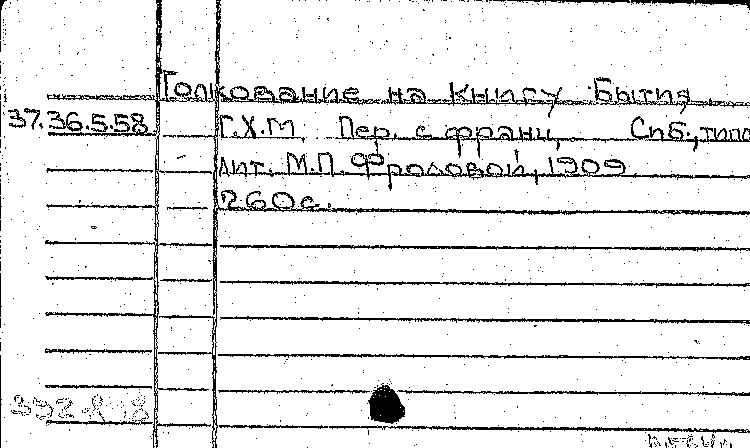 Толкование на Книгу Бытия.
37.36.5.58 Г.Х.М. Пер. с франц. СпБ., типо
лит. М.П. Фроловой, 1909
260с.